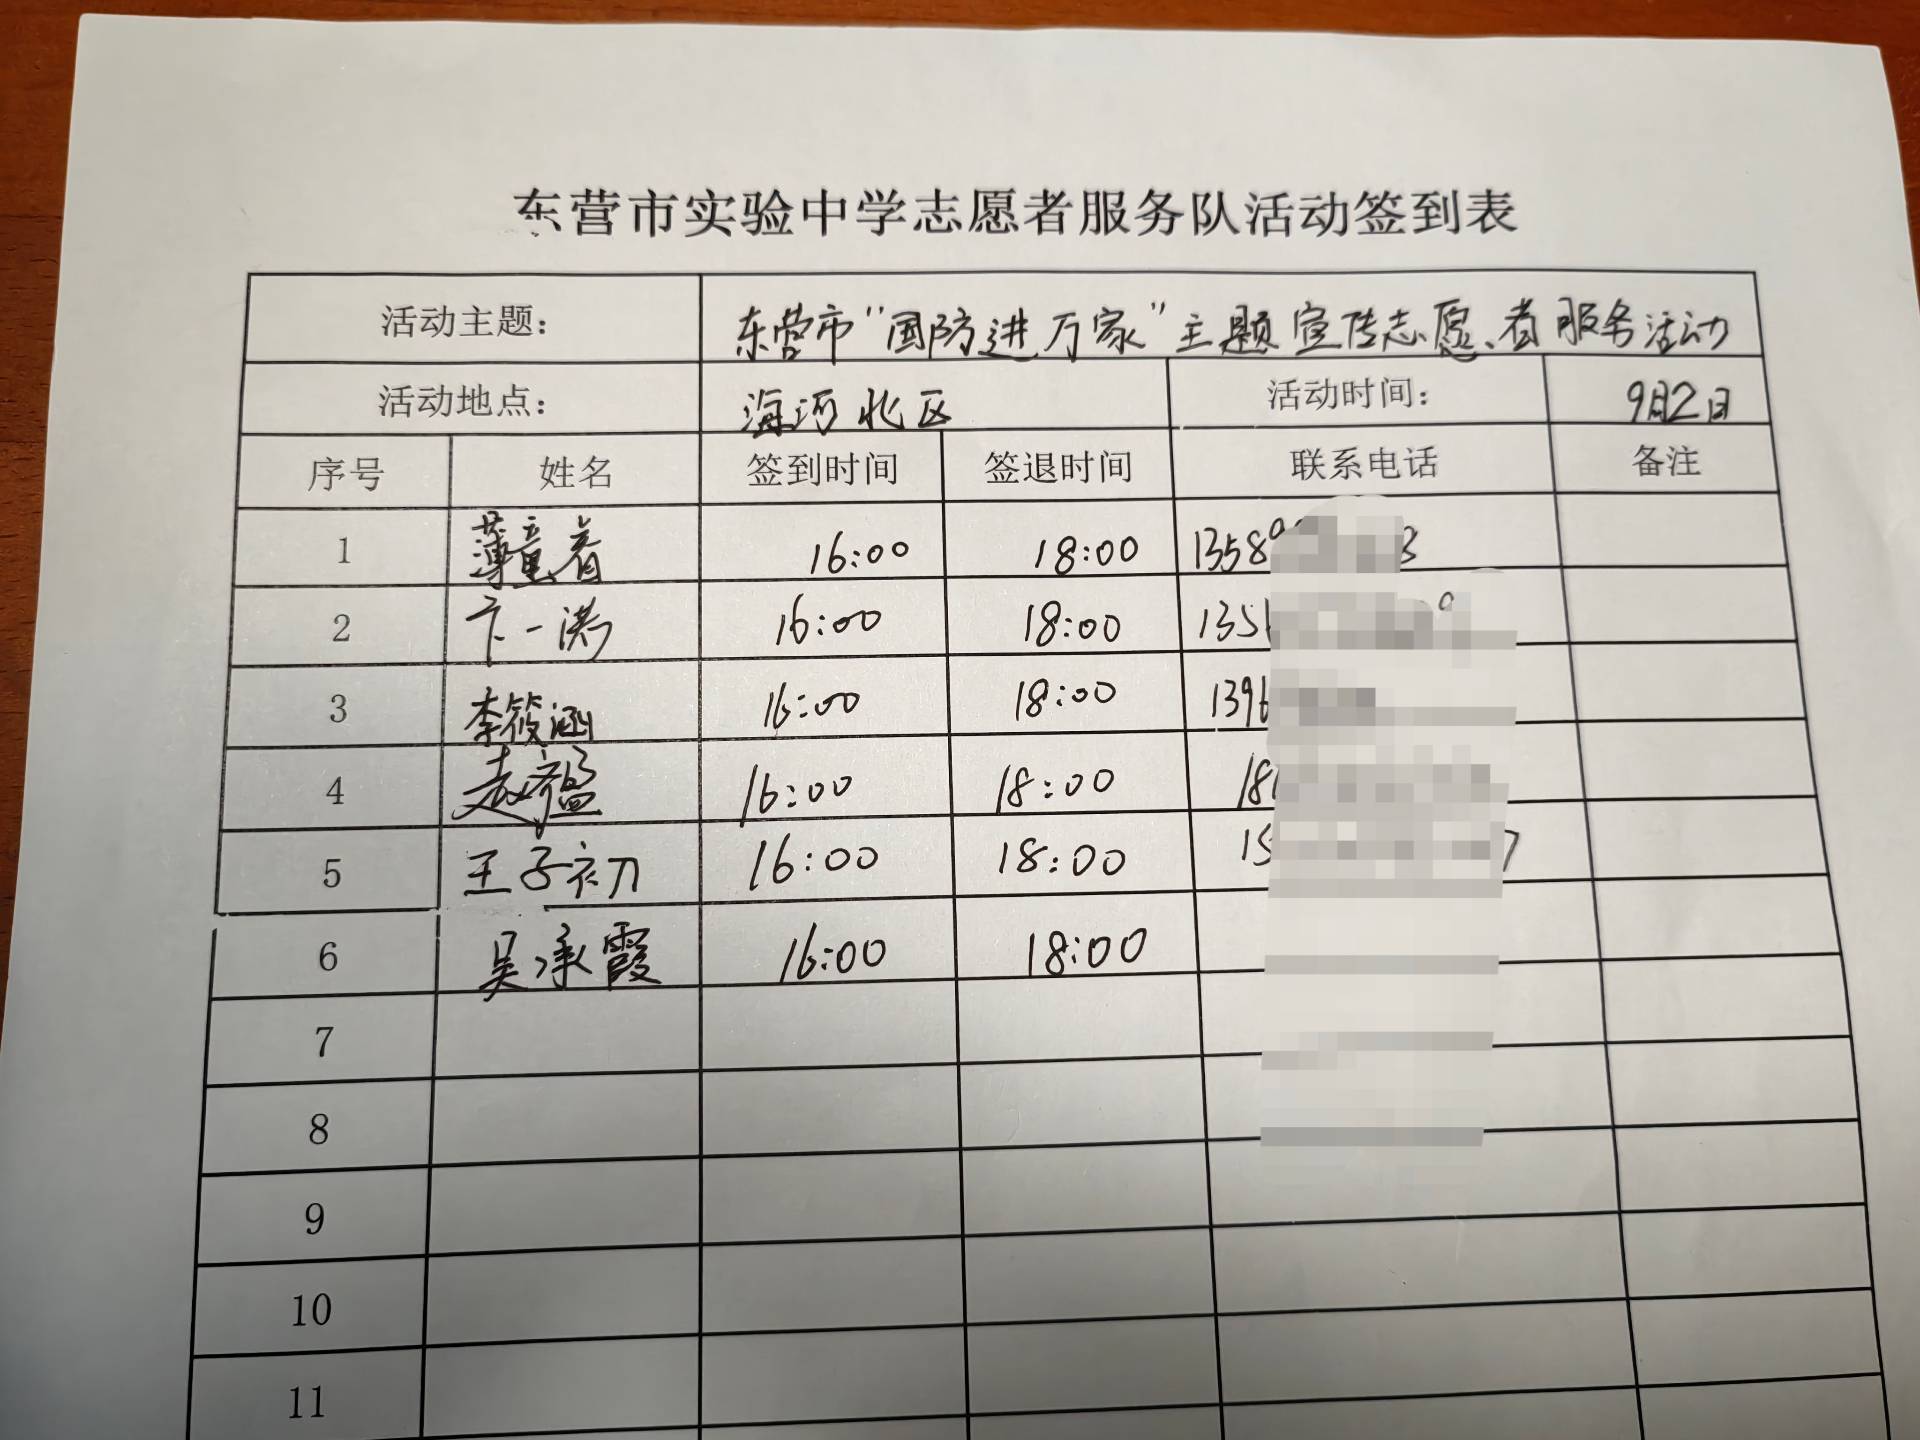 东营市实验中学志愿者服务队活动签到表
活动主题： 东营市“国防进万家”主题宣传志愿者服务活动
活动地点： 海河北区 活动时间： 9月2日
序号 姓名 签到时间 签退时间 联系电话 备注
1 薄童着 16:00 18:00 1358 3
2 卞一满 16:00 18:00 135
3 李筱涵 16:00 18:00 139
4 赵 16:00 18:00 18
5 王子初 16:00 18:00 15 7
6 吴承霞 16:00 18:00
7
8
9
10
11